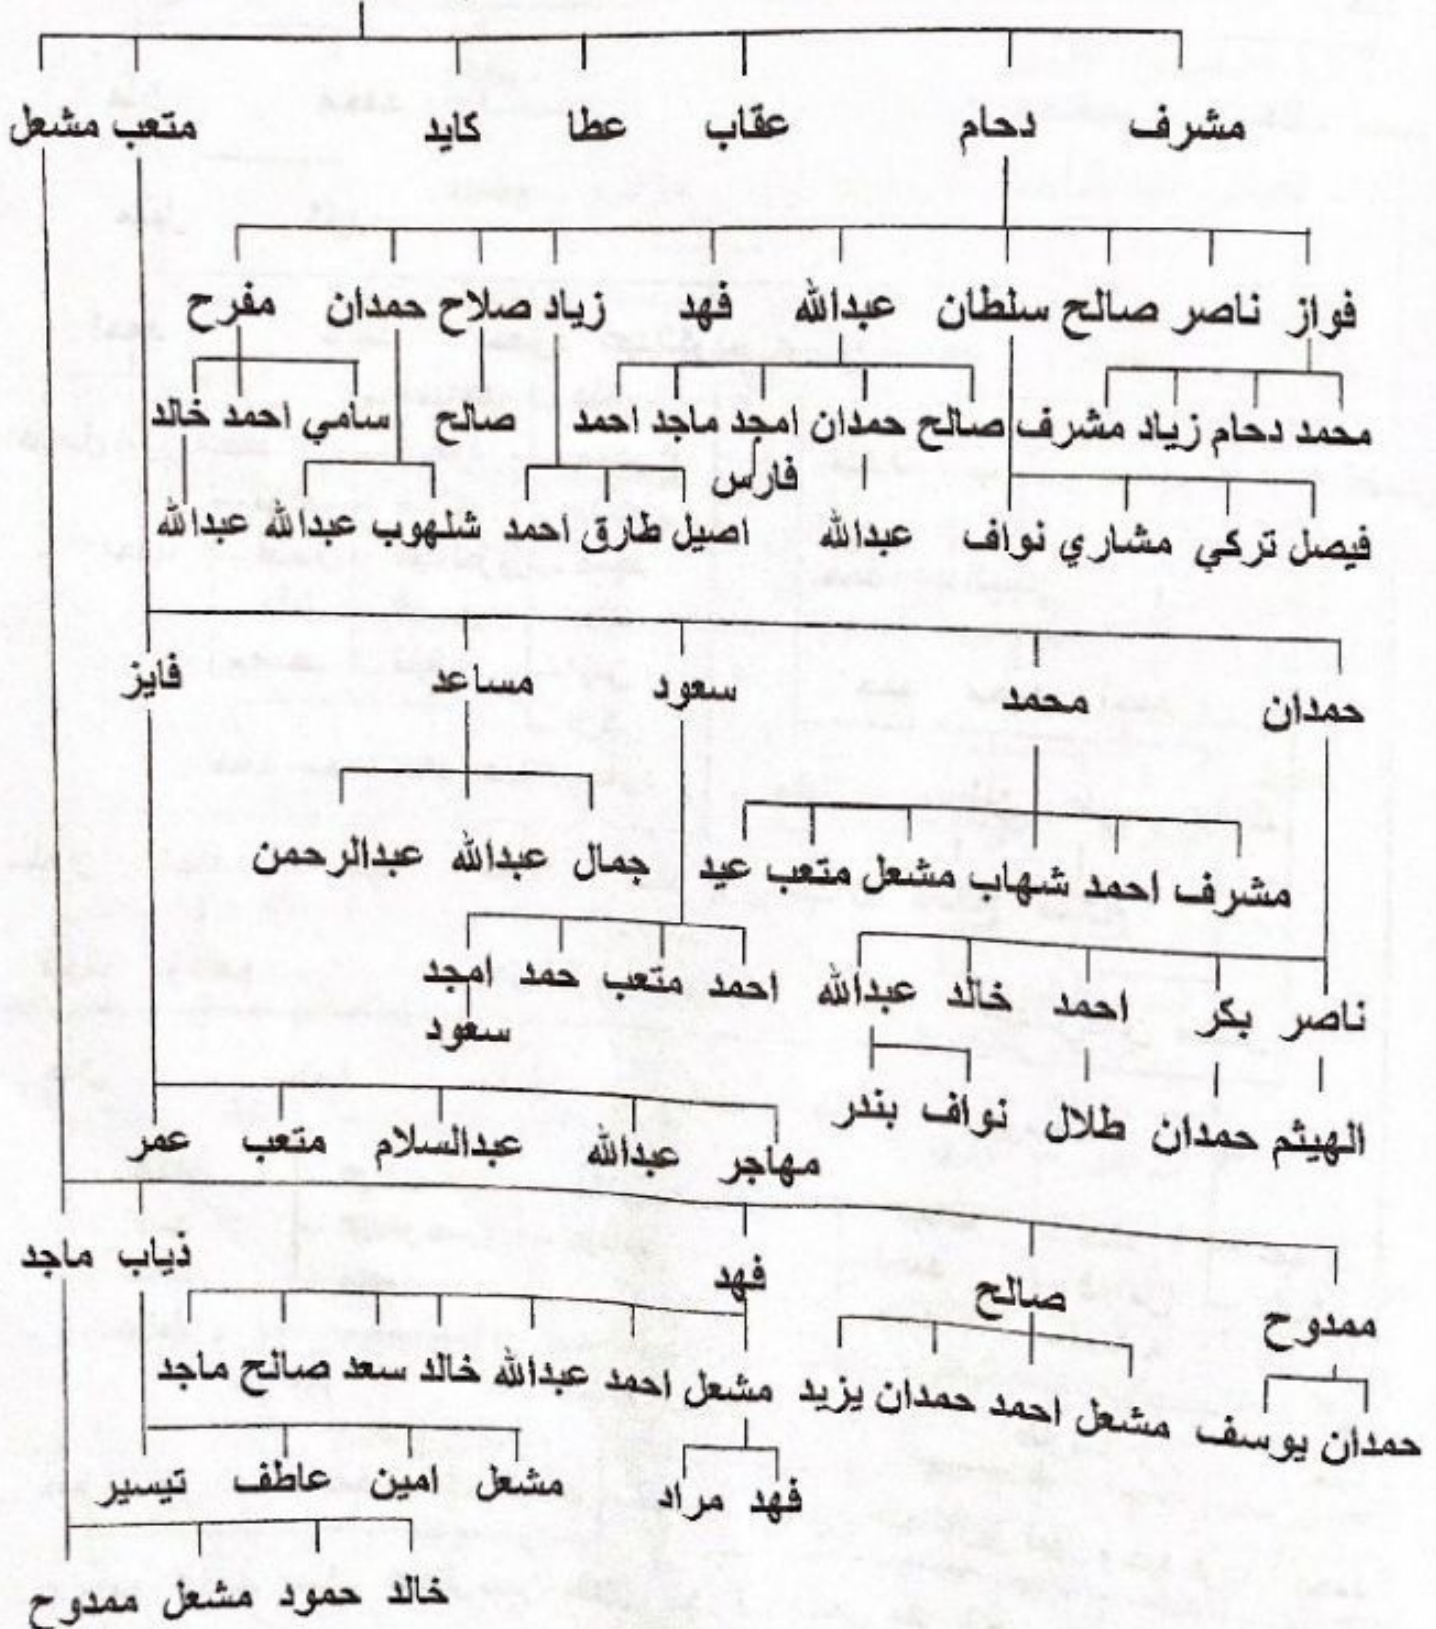 مشرف دحام عقاب عطا كايد متعب مشعل
فواز ناصر صالح سلطان عبدالله فهد زياد صلاح حمدان مفرح
محمد دحام زياد مشرف صالح حمدان امجد ماجد احمد صالح سامي احمد خالد
فارس
فيصل تركي مشاري نواف عبدالله اصيل طارق احمد شلهوب عبدالله عبدالله
حمدان محمد سعود مساعد فايز
مشرف احمد شهاب مشعل متعب عيد جمال عبدالله عبدالرحمن
ناصر بكر احمد خالد عبدالله احمد متعب حمد امجد
سعود
الهيثم حمدان طلال نواف بندر مهاجر عبدالله عبدالسلام متعب عمر
ممدوح صالح فهد ذياب ماجد
حمدان يوسف مشعل احمد حمدان يزيد مشعل احمد عبدالله خالد سعد صالح ماجد
فهد مراد مشعل امين عاطف تيسير
خالد حمود مشعل ممدوح